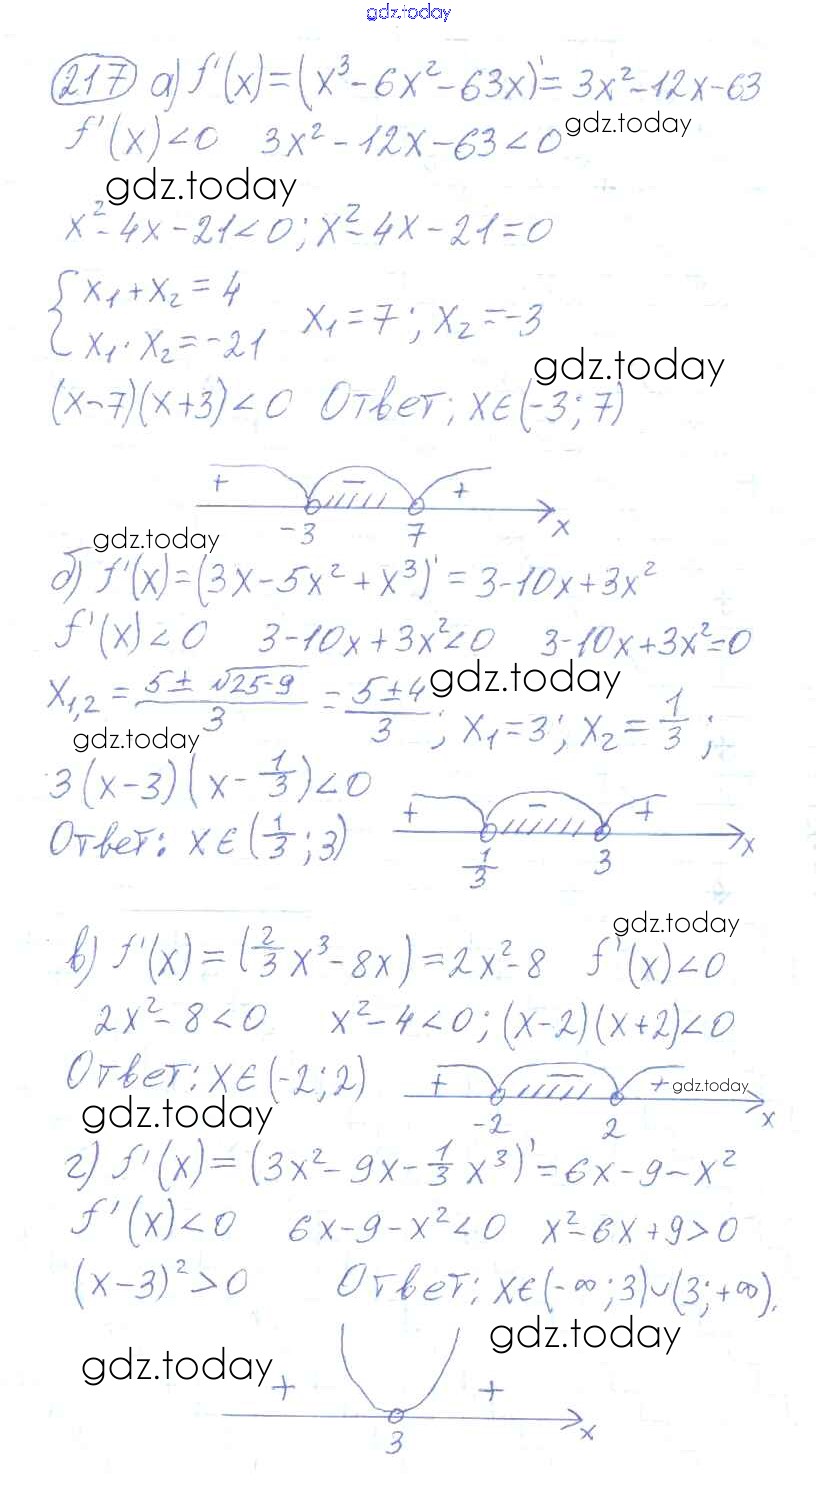 gdz.today
217 а) f'(x)=(x³-6x²-63x)'=3x²-12x-63
f'(x)<0 3x²-12x-63<0 gdz.today
gdz.today
x²-4x-21<0; x²-4x-21=0
{x₁+x₂=4
x₁·x₂=-21 x₁=7; x₂=-3
gdz.today
(x-7)(x+3)<0 Ответ; x∈(-3;7)
+ - +
-3 7 x
gdz.today
б) f'(x)=(3x-5x²+x³)'=3-10x+3x²
f'(x)<0 3-10x+3x²<0 3-10x+3x²=0
x₁,₂=(5±√25-9)/3=(5±4)/3; x₁=3; x₂=1/3;
gdz.today
gdz.today
3(x-3)(x-1/3)<0
+ - +
Ответ: x∈(1/3;3)
1/3 3 x
gdz.today
в) f'(x)=(2/3x³-8x)=2x²-8 f'(x)<0
2x²-8<0 x²-4<0; (x-2)(x+2)<0
Ответ: x∈(-2;2)
+ - + gdz.today
gdz.today
-2 2 x
г) f'(x)=(3x²-9x-1/3x³)'=6x-9-x²
f'(x)<0 6x-9-x²<0 x²-6x+9>0
(x-3)²>0 Ответ; x∈(-∞;3)∪(3;+∞).
gdz.today
gdz.today
+ +
3 x